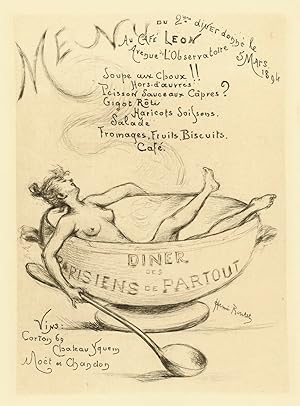 MENU
DU 2ème DINER donné le
5 MARS
1894
Au Café LEON
Avenue de L'Observatoire
Soupe aux Choux !!
Hors-d'œuvres
Poisson Sauce aux Câpres ?
Gigot Rôti
Haricots Soissons.
Salade
Fromages, Fruits, Biscuits.
Café.
DINER
DES
PARISIENS DE PARTOUT
Vins:
Corton 69
Chateau Yquem
Moët et Chandon